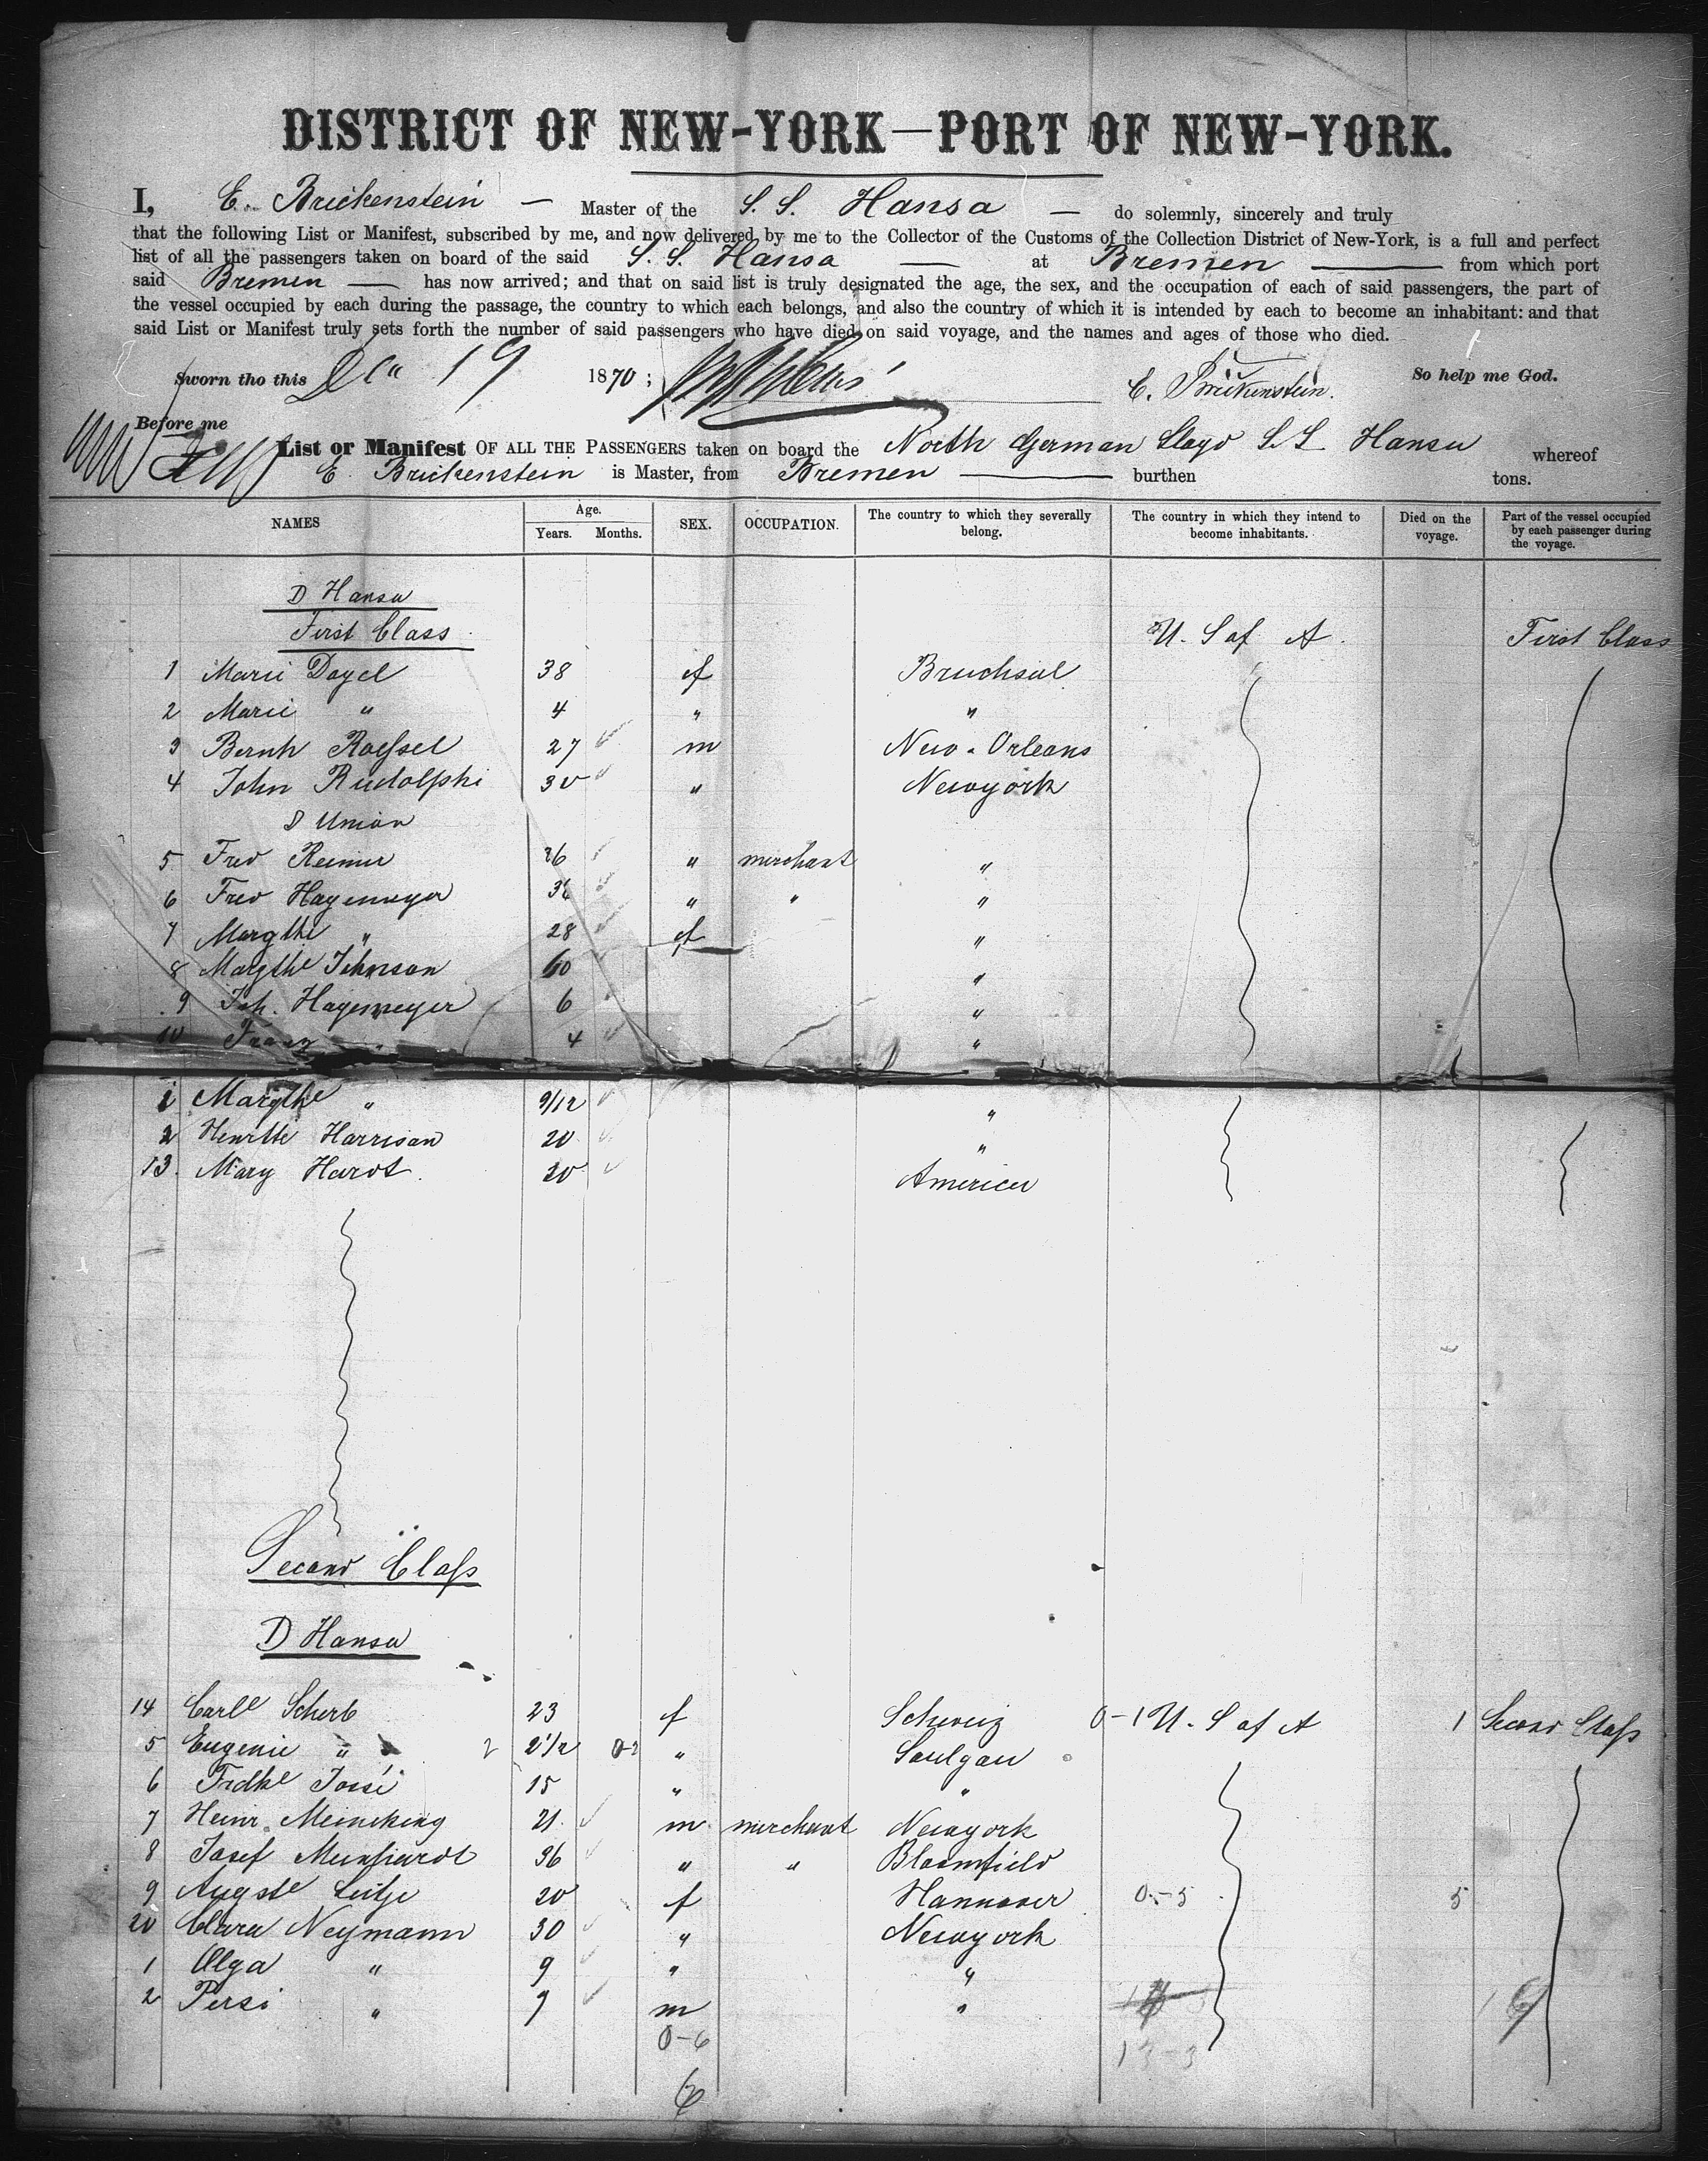 DISTRICT OF NEW-YORK—PORT OF NEW-YORK.
I, E. Brickenstein — Master of the S. S. Hansa — do solemnly, sincerely and truly
that the following List or Manifest, subscribed by me, and now delivered by me to the Collector of the Customs of the Collection District of New-York, is a full and perfect
list of all the passengers taken on board of the said S. S. Hansa — at Bremen — from which port
said Bremen — has now arrived; and that on said list is truly designated the age, the sex, and the occupation of each of said passengers, the part of
the vessel occupied by each during the passage, the country to which each belongs, and also the country of which it is intended by each to become an inhabitant: and that
said List or Manifest truly sets forth the number of said passengers who have died on said voyage, and the names and ages of those who died.
Sworn tho this Dec 19 1870; E. Brickenstein. So help me God.
Before me
List or Manifest OF ALL THE PASSENGERS taken on board the North German Lloyd S. S. Hansa whereof
E Brickenstein is Master, from Bremen — burthen tons.
NAMES Age. Years. Months. SEX. OCCUPATION. The country to which they severally belong. The country in which they intend to become inhabitants. Died on the voyage. Part of the vessel occupied by each passenger during the voyage.
D Hansa
First Class U. S of A. First Class
1 Marie Dayel 38 f Bruchsal
2 Marie " 4 " "
3 Bernh Roessel 27 m New-Orleans
4 John Rudolphi 30 " Newyork
D Union
5 Fred Reimer 26 " merchant "
6 Fred Hagemeyer 36 " " "
7 Margthe " 28 f "
8 Margthe Johnson 60 "
9 Joh. Hagemeyer 6 "
10 Franz " 4 "
1 Margthe " 9/12 "
2 Henrtte Harrison 20 "
13. Mary Hardt. 20 America
Second Class
D Hansa
14 Carle Scherb 23 f Schweiz 0-1 U. S of A 1 Second Class
5 Eugenie " 2 2 1/2 0-2 " Saulgau
6 Frdke 15 " "
7 Heinr. Meineking 21. m merchant Newyork
8 Josef Meinhardt 36 " " Bloomfield
9 Augste 20 f Hannover 0-5 5
20 Clara Neymann 30 " Newyork
1 Olga " 9 " "
2 Persi " 7 m "
0-6
13-3
6